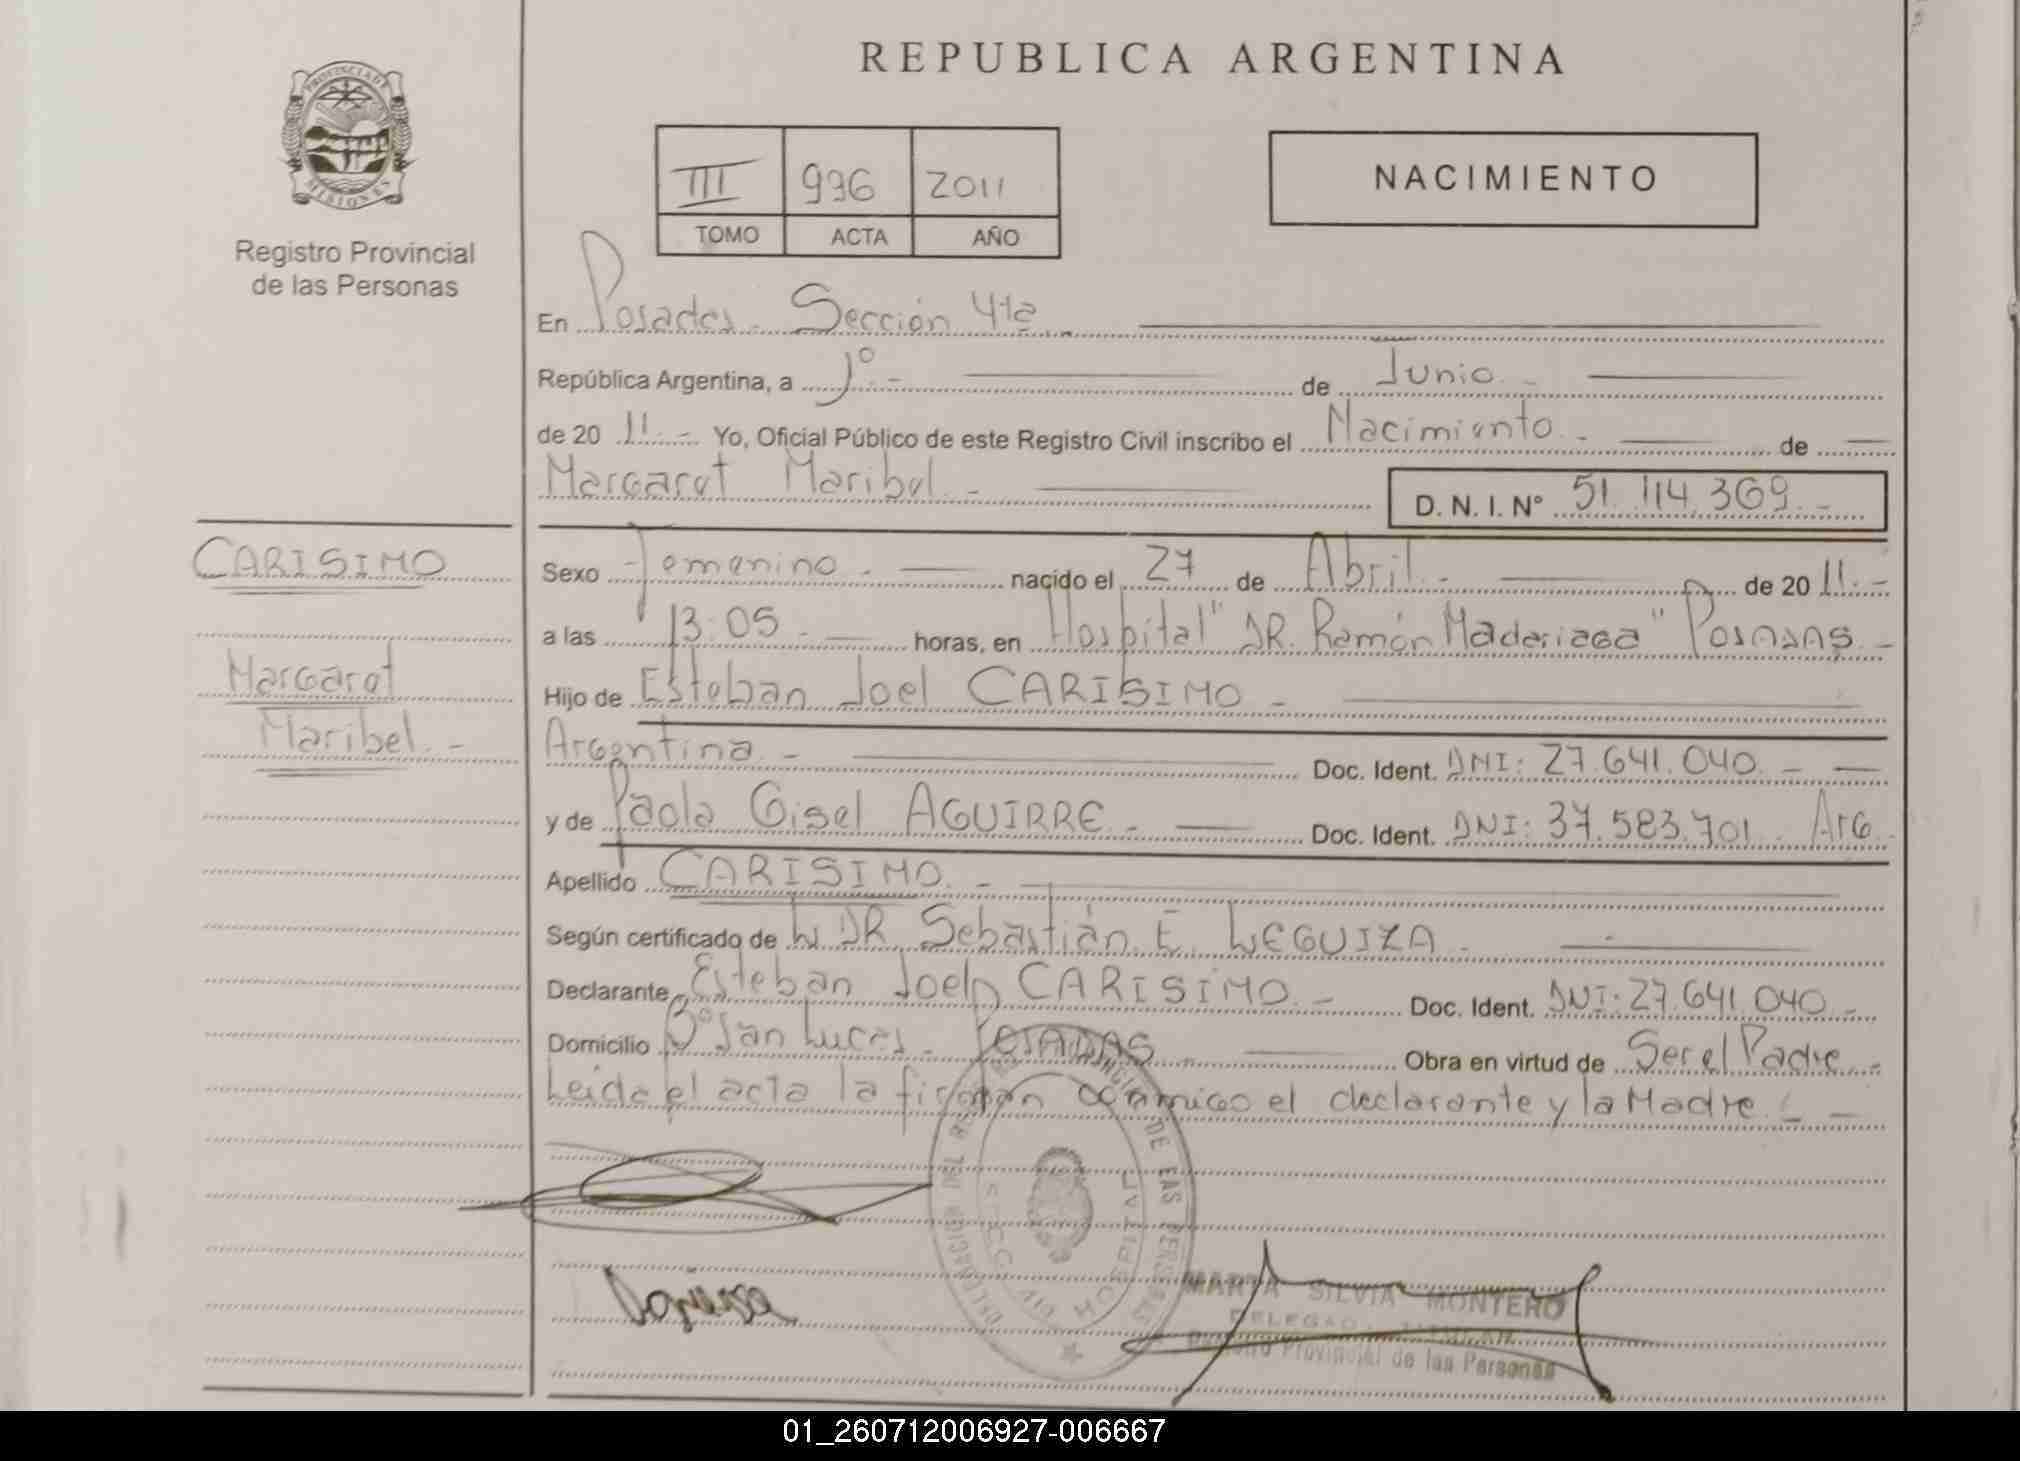 REPUBLICA ARGENTINA
PROVINCIA DE MISIONES
Registro Provincial
de las Personas
III 996 2011
TOMO ACTA AÑO
NACIMIENTO
En Posadas. Sección 4ta
República Argentina, a 1º.- de Junio.-
de 20 11.- Yo, Oficial Público de este Registro Civil inscribo el Nacimiento.- de
Margaret Maribel.- D. N. I. Nº 51.114.369.-
CARISIMO
Margaret
Maribel.-
Sexo Femenino.- nacido el 27 de Abril.- de 20 11.-
a las 13:05.- horas, en Hospital "DR. Ramón Madariaga" Posadas.-
Hijo de Esteban Joel CARISIMO.-
Argentina.- Doc. Ident. DNI: 27.641.040.-
y de Paola Gisel AGUIRRE.- Doc. Ident. DNI: 37.583.701. Arg.
Apellido CARISIMO.-
Según certificado de DR. Sebastián E. LEGUIZA.-
Declarante Esteban Joel CARISIMO.- Doc. Ident. DNI: 27.641.040.-
Domicilio Bº San Lucas.- POSADAS.- Obra en virtud de Ser el Padre.-
Leida el acta la firman conmigo el declarante y la Madre.-
DE LAS PERSONAS
HOSPITAL
MARTA SILVIA MONTERO
DELEGADA TITULAR
Registro Provincial de las Personas
01_260712006927-006667